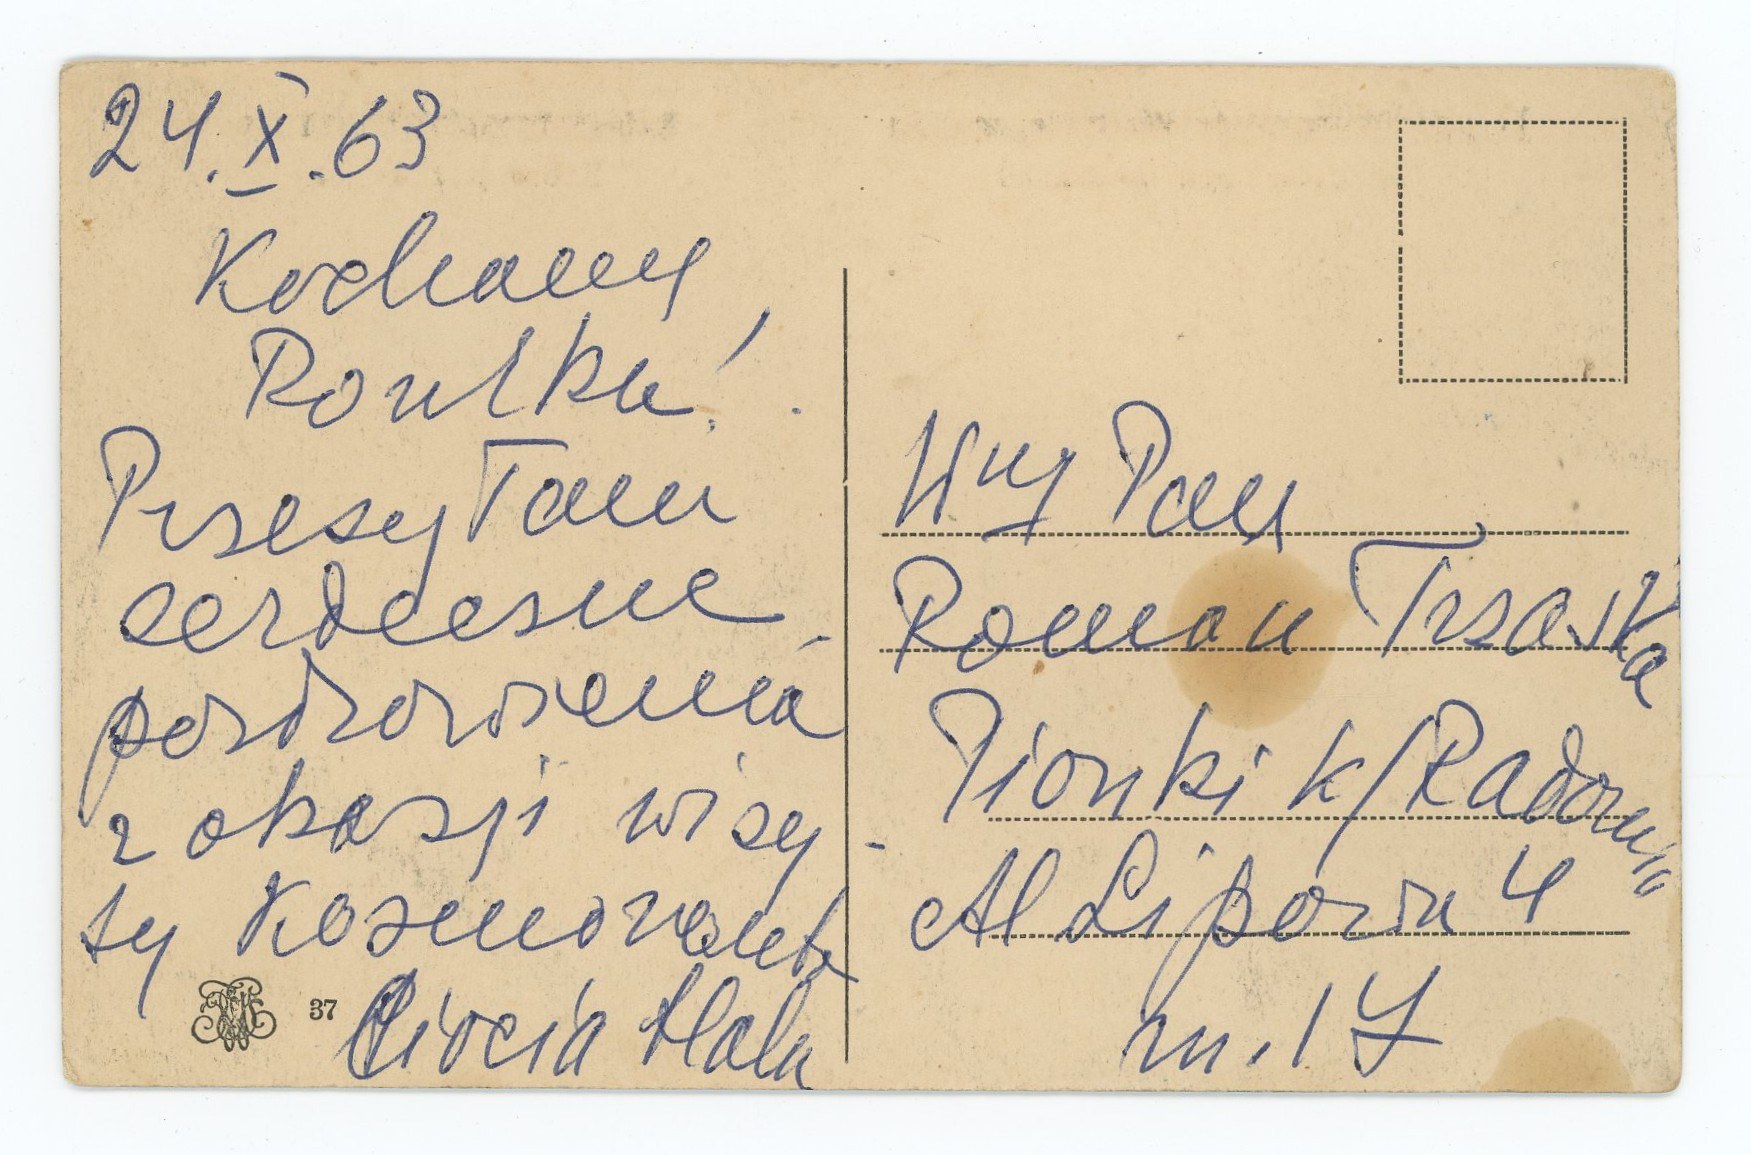 24.X.63
Kochany
Romku!
Przesyłam
serdeczne
pozdrowienia
z okazji wizy-
ty Kosmonauty
Ciocia Hala
37
Pan
Roman Trzaska
Pionki k/Radomia
Al Lipowa 4
m. 17